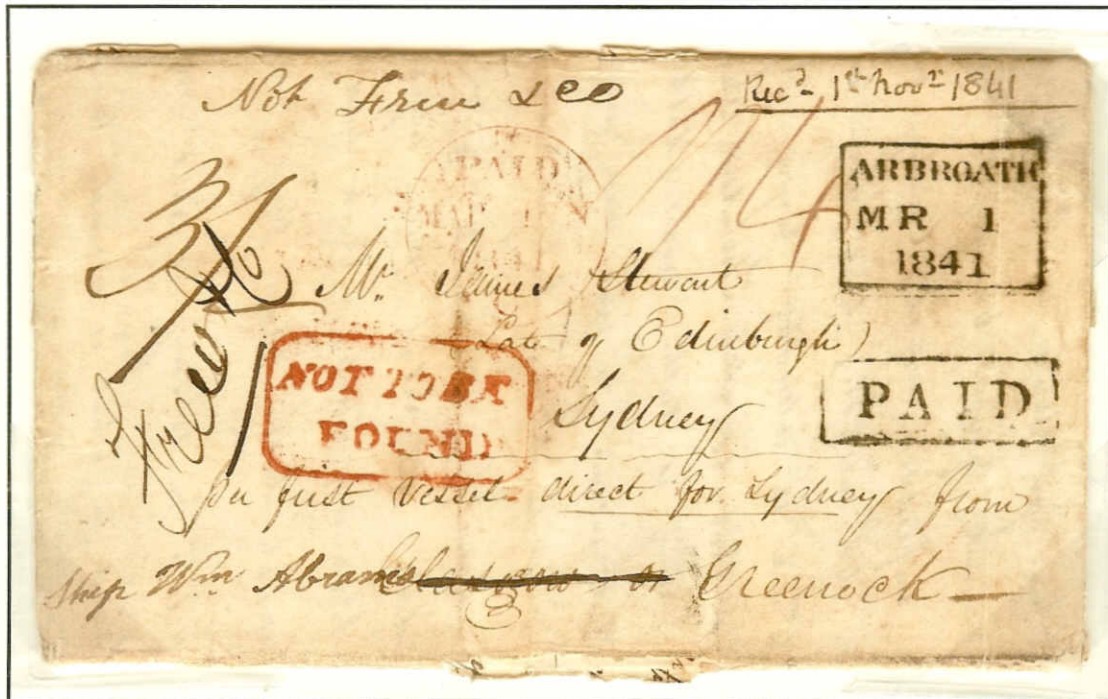 Not
Recd 1st Novr 1841
PAID
MAR 1
1841
1/4
ARBROATH
MR 1
1841
3/
Free
Mr. James Stewart
(Late of Edinburgh)
NOT TO BE
FOUND
Sydney
PAID
Per first vessel direct for Sydney from
Ship Wm Abrams Glasgow or Greenock —